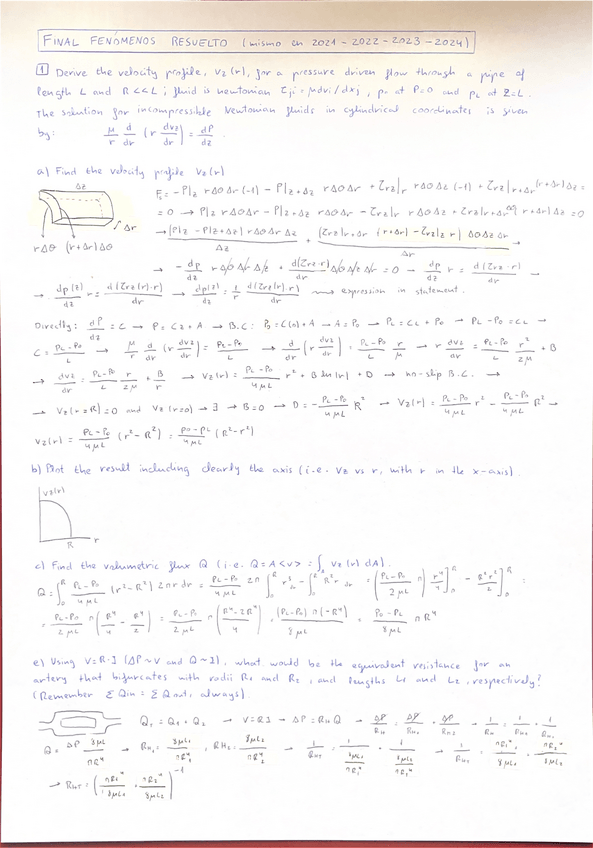 FINAL FENÓMENOS RESUELTO (mismo en 2021 - 2022 - 2023 - 2024)
1 Derive the velocity profile, vz(r), for a pressure driven flow through a pipe of
length L and R<<L ; fluid is newtonian τji = μdvi/dxj , po at P=0 and pL at Z=L.
The solution for incompressible Newtonian fluids in cylindrical coordinates is given
by: μ/r d/dr (r dvz/dr) = dP/dz .
a) Find the velocity profile vz(r)
Δz
Δr
rΔθ (r+Δr)Δθ
= 0 → P|z rΔθΔr - P|z+Δz rΔθΔr - τrz|r rΔθΔz + τrz|r+Δr (r+Δr)Δz = 0
→ (P|z - P|z+Δz) rΔθΔrΔz / Δz + (τrz|r+Δr (r+Δr) - τrz|r r) ΔθΔzΔr / Δr →
→ - dp/dz rΔθΔrΔz + d(τrz·r)/dr ΔθΔzΔr = 0 → dp/dz r = d(τrz·r)/dr →
→ dp(z)/dz r = d(τrz(r)·r)/dr → dp(z)/dz = 1/r d(τrz(r)·r)/dr ⟿ expression in statement.
Directly: dP/dz = C → P = Cz + A → B.C: Po = C(0) + A → A = Po → PL = CL + Po → PL - Po = CL →
C = PL-Po/L → μ/r d/dr (r dvz/dr) = PL-Po/L → d/dr (r dvz/dr) = PL-Po/L r/μ → r dvz/dr = PL-Po/L r²/2μ + B
→ dvz/dr = PL-Po/L r/2μ + B/r → vz(r) = PL-Po/4μL r² + B ln(r) + D → no-slip B.C. →
→ vz(r=R) = 0 and vz(r=0) → ∃ → B=0 → D = - PL-Po/4μL R² → vz(r) = PL-Po/4μL r² - PL-Po/4μL R² →
vz(r) = PL-Po/4μL (r² - R²) = Po-PL/4μL (R² - r²)
b) Plot the result including clearly the axis (i.e. vz vs r, with r in the x-axis).
vz(r)
R r
c) Find the volumetric flux Q (i.e. Q = A<v> = ∫ vz(r) dA).
= PL-Po/2μL π (R⁴/4 - R⁴/2) = PL-Po/2μL π (R⁴-2R⁴/4) = (PL-Po) π (-R⁴)/8μL = Po-PL/8μL πR⁴
e) Using V=R·I (ΔP~V and Q~I), what would be the equivalent resistance for an
artery that bifurcates with radii R1 and R2 , and lengths L1 and L2 , respectively?
(Remember ΣQin = ΣQout, always).
QT = Q1 + Q2 → V=RI → ΔP = RH Q → ΔP/RH = ΔP/RH1 + ΔP/RH2 → 1/RH = 1/RH1 + 1/RH2
→ RHT = (πR1⁴/8μL1 + πR2⁴/8μL2)⁻¹